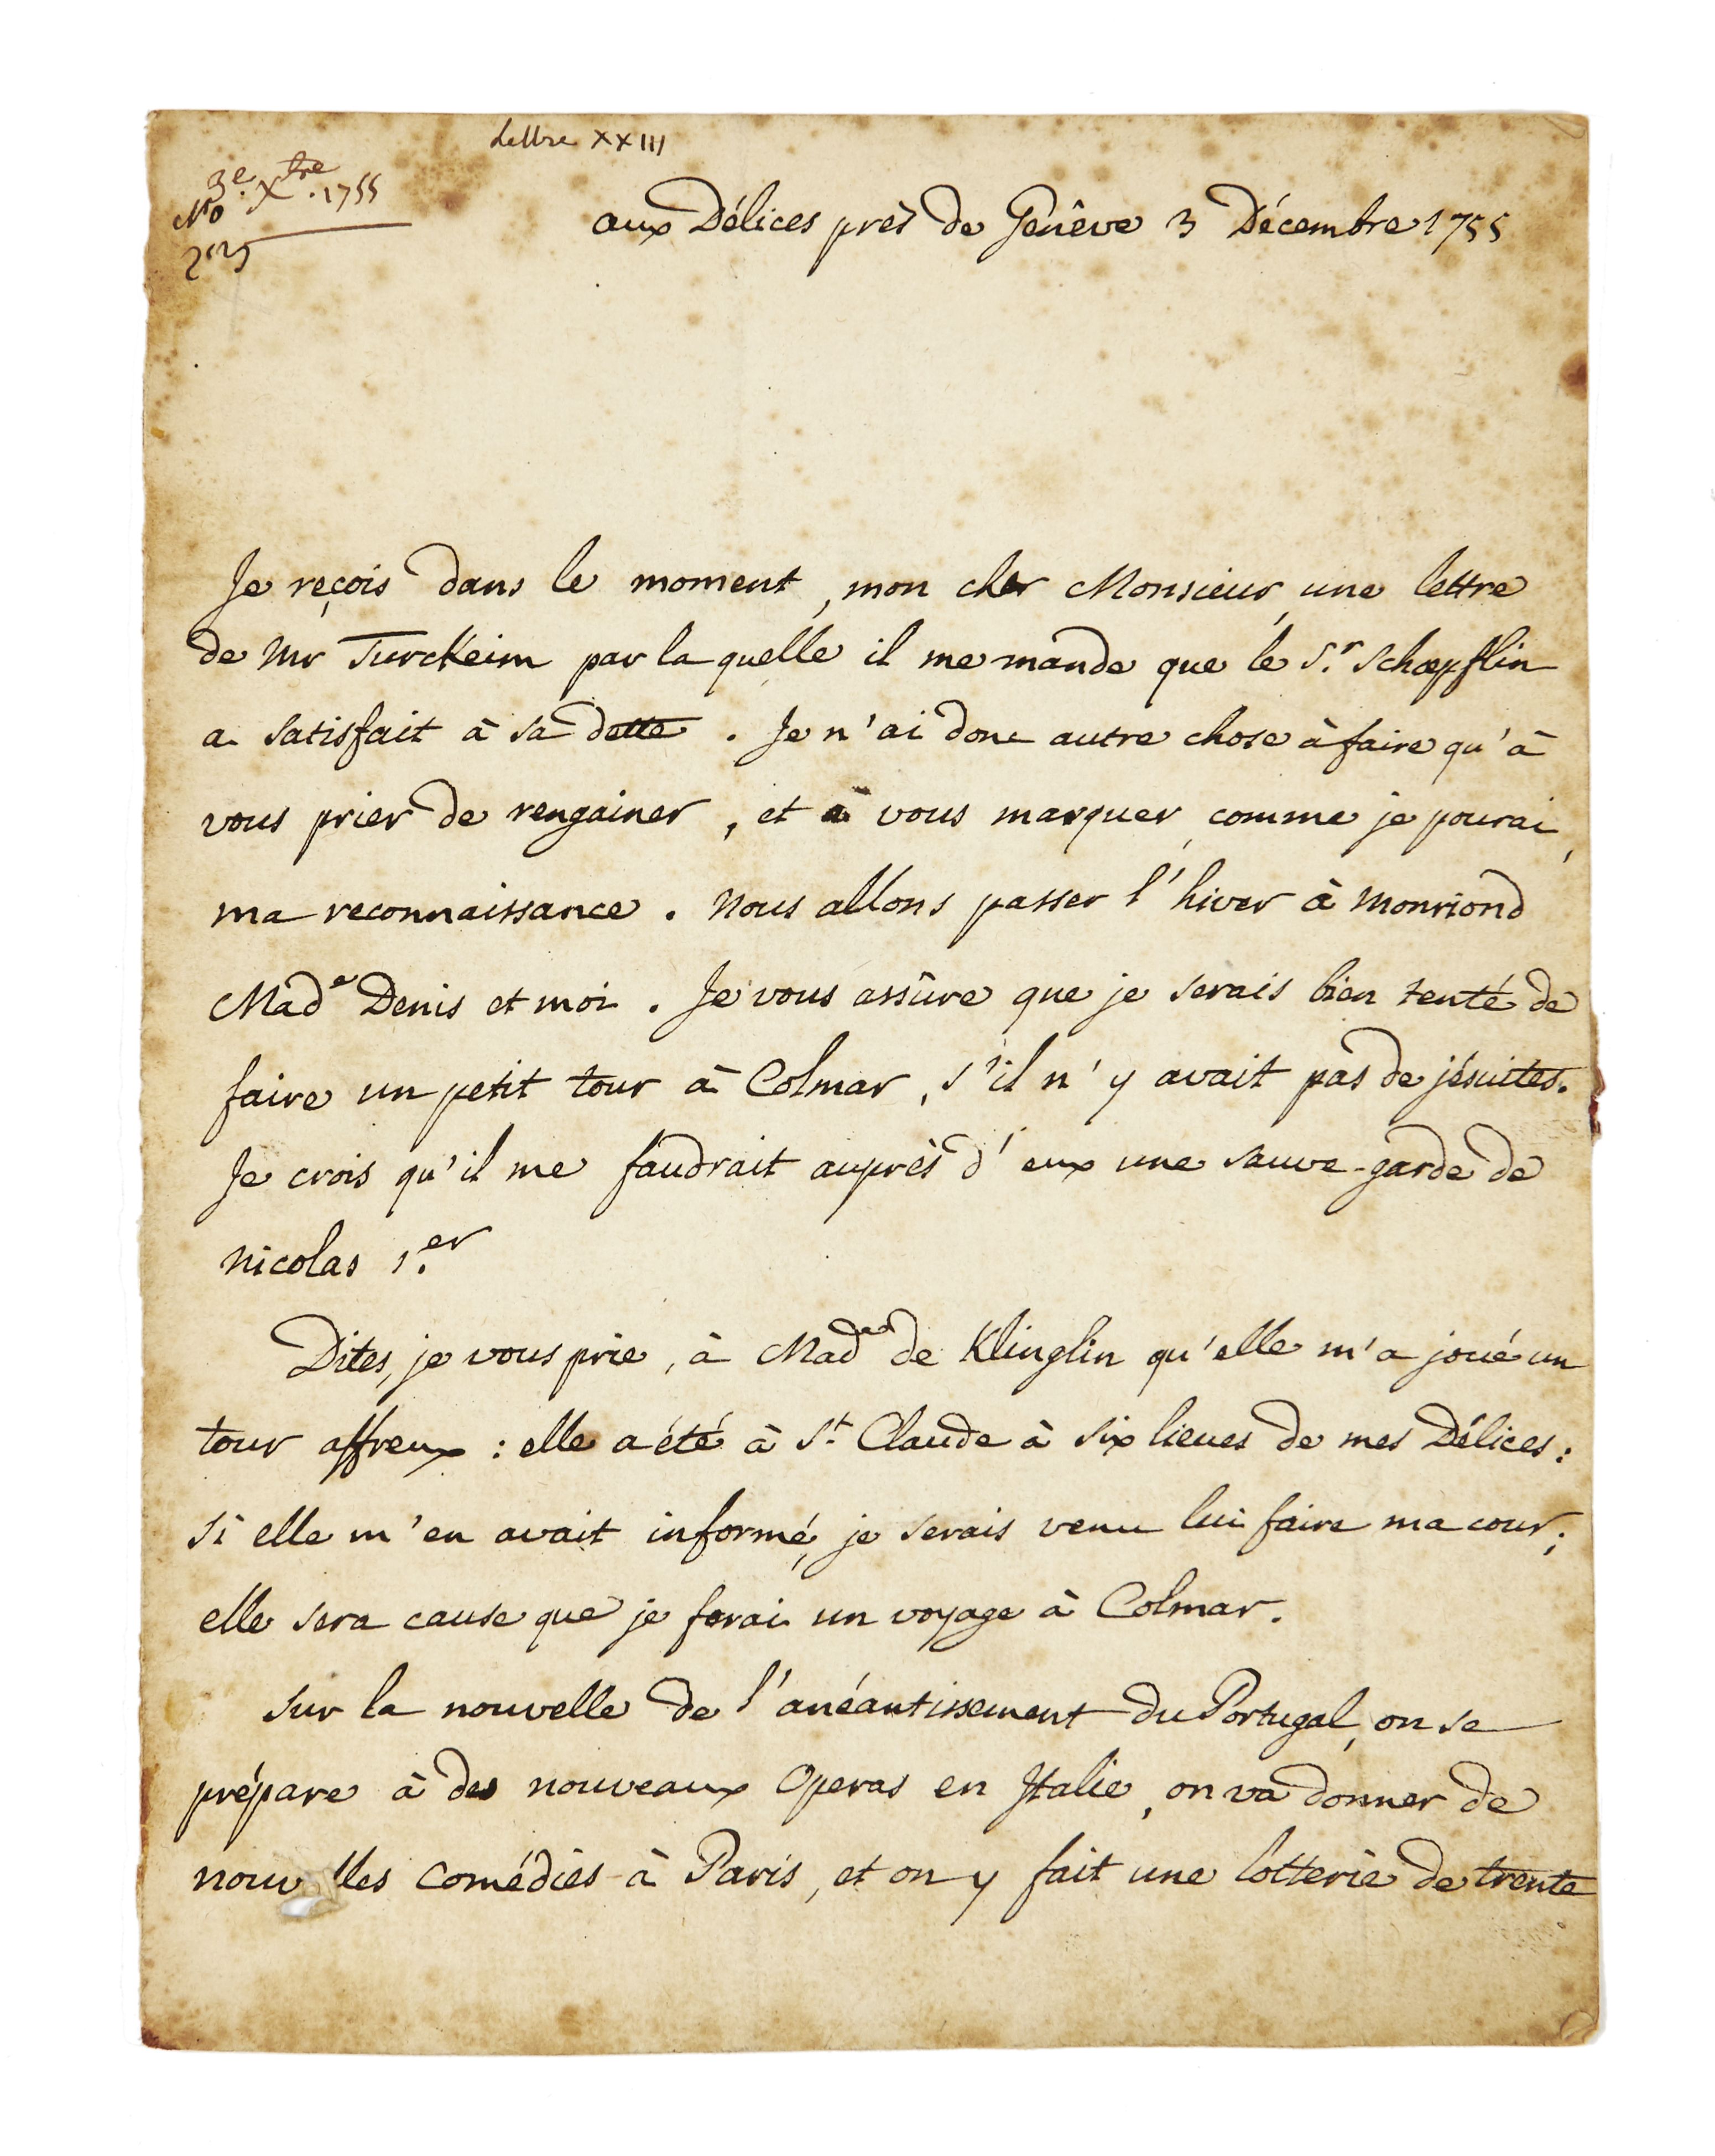 Lettre XXIII
3e. Xbre. 1755
No
aux Délices près de Genêve 3 Décembre 1755
Je reçois dans le moment, mon cher Monsieur, une lettre
de Mr Turckeim par la quelle il me mande que le Sr. Schœpflin
a satisfait à sa dette. Je n'ai donc autre chose à faire qu'à
vous prier de rengainer, et à vous marquer, comme je pourai,
ma reconnaissance. Nous allons passer l'hiver à Monriond
Made Denis et moi. Je vous assûre que je serais bien tenté de
faire un petit tour à Colmar, s'il n'y avait pas de jésuites.
Je crois qu'il me faudrait auprès d'eux une sauve-garde de
Nicolas 1.er
Dites, je vous prie, à Made de Klinglin qu'elle m'a joué un
tour affreux : elle a été à St. Claude à six lieues de mes Délices :
si elle m'en avait informé, je serais venu lui faire ma cour ;
elle sera cause que je ferai un voyage à Colmar.
Sur la nouvelle de l'anéantissement du Portugal, on se
prépare à des nouveaux Operas en Italie, on va donner de
nouv lles comédies à Paris, et on y fait une lotterie de trente